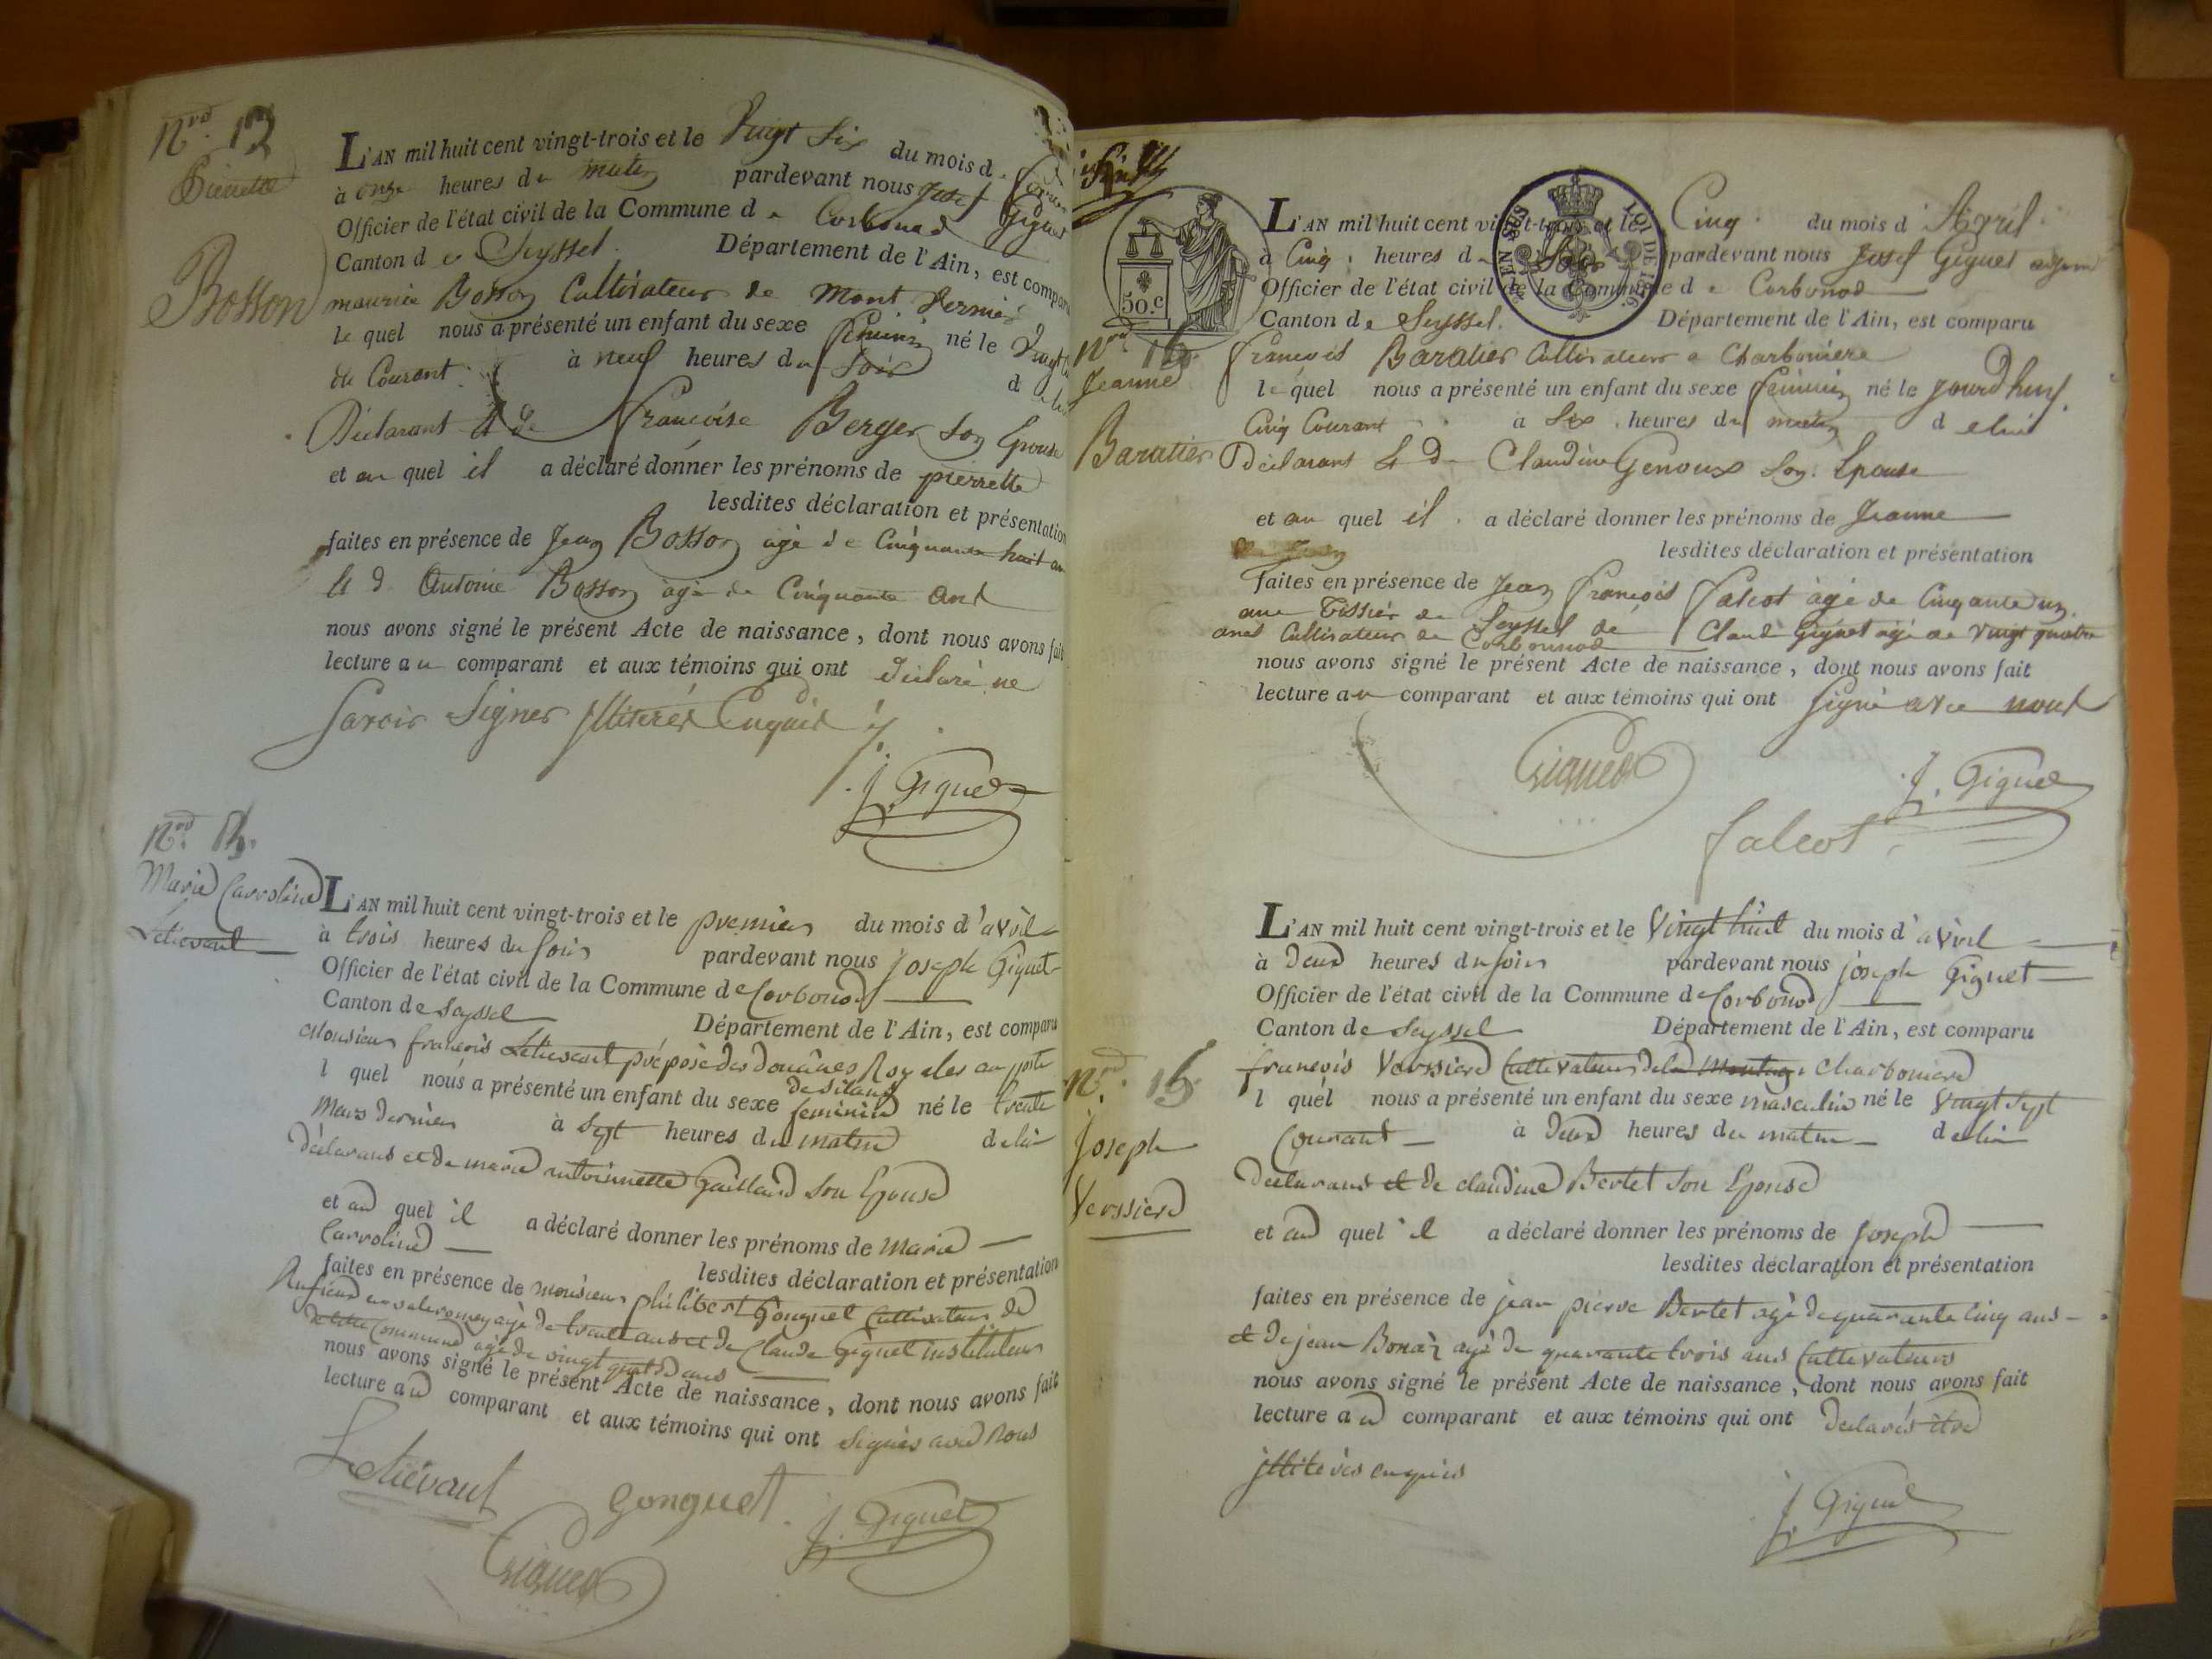 Nro. 12
Pierrette
Bosson
L'AN mil huit cent vingt-trois et le Vingt Six du mois d
à onze heures du matin pardevant nous Josef Giguet
Officier de l'état civil de la Commune de Corbonod
Canton de Seyssel. Département de l'Ain, est comparu
maurice Bosson Cultivateur de Mont
le quel nous a présenté un enfant du sexe feminin né le Vingt
du Courant à neuf heures du Soir d
Déclarant & de francoise Berger Son Epouse
et au quel il a déclaré donner les prénoms de pierrette
lesdites déclaration et présentation
faites en présence de Jean Bosson agé de Cinquante huit an
& d Antoine Bosson agé de Cinquante ans
nous avons signé le présent Acte de naissance, dont nous avons fait
lecture au comparant et aux témoins qui ont déclaré ne
Savoir Signer jlliterés Enquis
J. Giguet
Nro.
Marie Carroline
Letievant
L'AN mil huit cent vingt-trois et le premier du mois d'avril
à trois heures du soir pardevant nous Joseph Giguet
Officier de l'état civil de la Commune de Corbonod
Canton de Seyssel Département de l'Ain, est comparu
Monsieur francois Letievant préposé des douânes Royales au poste
l quel nous a présenté un enfant du sexe feminin né le trente
Mars dernier à Sept heures du matin de lui
déclarans et de marie antoinnette Gaillard son Epouse
et au quel il a déclaré donner les prénoms de Marie
Carroline
lesdites déclaration et présentation
faites en présence de monsieur philibert Gonguet Cultivateur de
Rufieux en valeromey agé de trente ans et de Claude Giguet instituteur
de cette Commune agé de vingt quatre ans
nous avons signé le présent Acte de naissance, dont nous avons fait
lecture au comparant et aux témoins qui ont signés avec nous
Letiévant
Gonguet. J. Giguet
Giguet
50.c
LOI DE 1816.
L'AN mil huit cent vingt-trois et le Cinq du mois d'Avril
à Cinq heures du Soir pardevant nous Josef Giguet
Officier de l'état civil de la Commune de Corbonod
Canton de Seyssel. Département de l'Ain, est comparu
Nro
Jeanne
Baratier
francois Baratier Cultivateur a Charboniere
le quel nous a présenté un enfant du sexe feminin né le jourdhuy
Cinq Courant à Six heures du matin de lui
Déclarant & de Claudine Genoux Son Epouse
et au quel il a déclaré donner les prénoms de Jeanne
lesdites déclaration et présentation
faites en présence de Jean François falcot agé de Cinqante un
ans Tissier de Seyssel de Claude Giguet agé de Vingt quatre
ans Cultivateur de Corbonnod
nous avons signé le présent Acte de naissance, dont nous avons fait
lecture au comparant et aux témoins qui ont Signé avec nous
Giguet J. Giguet
falcot
Nro. 16
Joseph
Verssiere
L'AN mil huit cent vingt-trois et le Vingt huit du mois d'avril
à deux heures du soir pardevant nous joseph Giguet
Officier de l'état civil de la Commune de Corbonod
Canton de Seyssel Département de l'Ain, est comparu
francois Verssiere Cultivateur de la Montagne Charboniere
l quel nous a présenté un enfant du sexe masculin né le Vingt Sept
Courant à deux heures du matin de lui
déclarans et de claudine Bertet son Epouse
et au quel il a déclaré donner les prénoms de Joseph
lesdites déclaration et présentation
faites en présence de jean pierre Bertet agé de quarante Cinq ans
et de jean agé de quarante trois ans Cultivateurs
nous avons signé le présent Acte de naissance, dont nous avons fait
lecture au comparant et aux témoins qui ont déclarés être
jllitérés enquis
J. Giguet